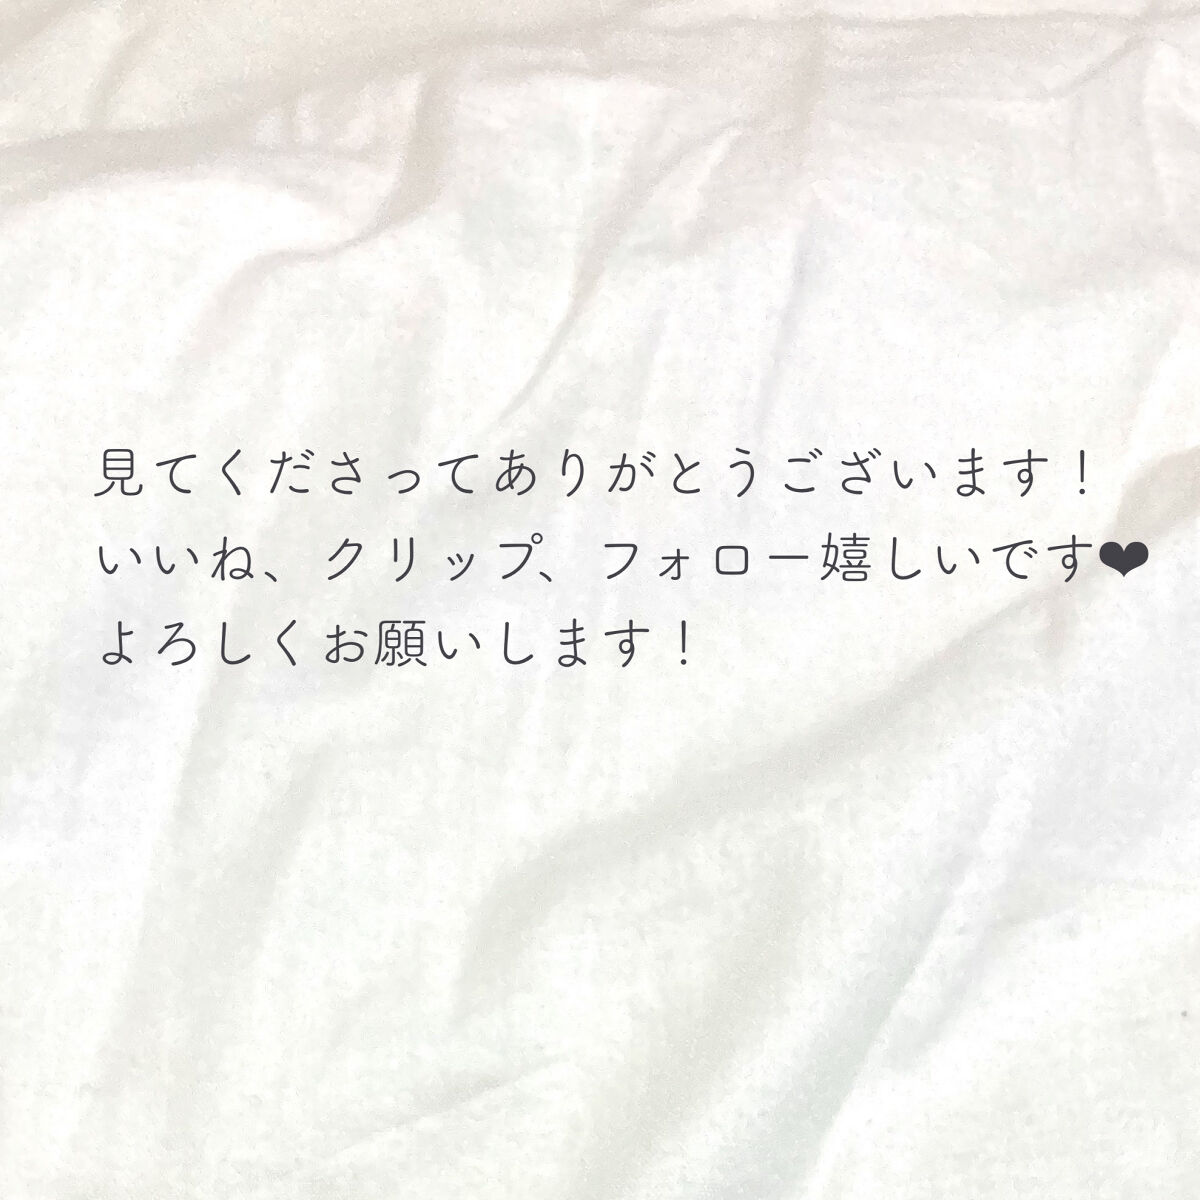 見てくださってありがとうございます！
いいね、クリップ、フォロー嬉しいです❤
よろしくお願いします！